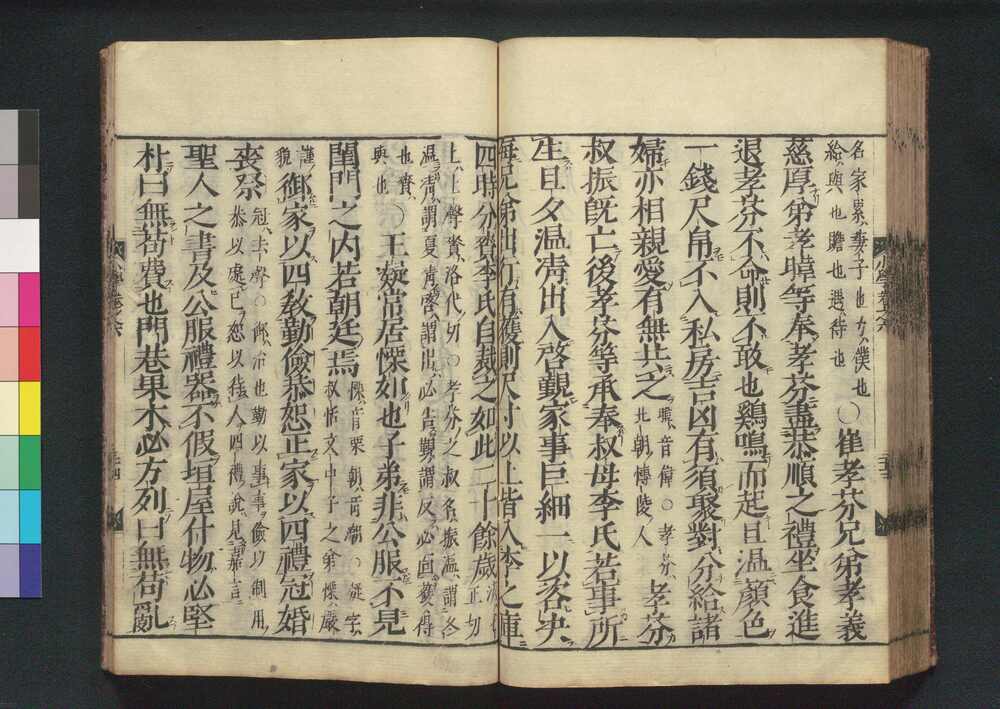 名家累妻子也力僕也
給與也贍也遇待也
○崔孝芬兄弟孝義
慈厚弟孝暐等奉孝芬盡恭順之禮坐食進
退孝芬不命則不敢也鷄鳴而起旦溫顏色
一錢尺帛不入私房吉凶有須聚對分給諸
婦亦相親愛有無共之
暐音偉○孝芬
北朝博陵人
孝芬
叔振旣亡後孝芬等承奉叔母李氏若事所
生旦夕溫凊出入啓覲家事巨細一以咨決
每兄弟出行有獲則尺寸以上皆入李之庫
四時分賚李氏自裁之如此二十餘歲
上上聲賚洛代切○孝芬之叔名振溫謂冬
溫凊謂夏凊啓謂出必告覲謂反必面獲得
也賚
與也
○王凝常居慄如也子弟非公服不見
閨門之內若朝廷焉
慄音栗朝音潮○凝字
叔恬文中子之弟慄嚴
謹
貌
御家以四敎勤儉恭恕正家以四禮冠婚
喪祭
冠去聲○御治也勤以事事儉以制用
恭以處己恕以待人四禮說見嘉言
聖人之書及公服禮器不假垣屋什物必堅
朴曰無苟費也門巷果木必方列曰無苟亂